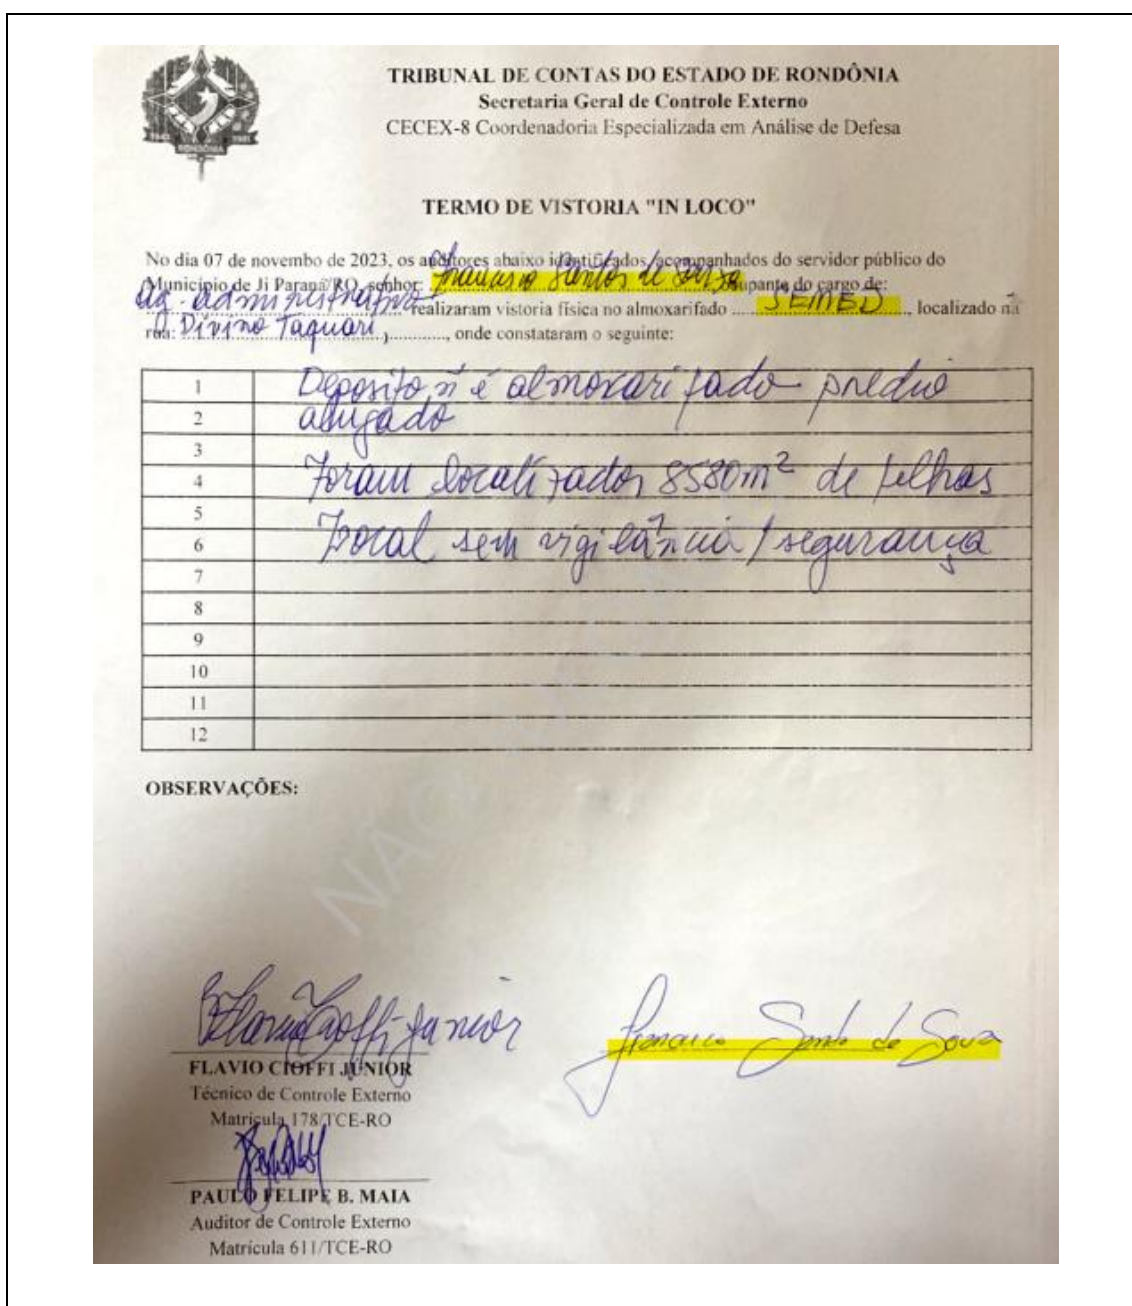 TRIBUNAL DE CONTAS DO ESTADO DE RONDÔNIA
Secretaria Geral de Controle Externo
CECEX-8 Coordenadoria Especializada em Análise de Defesa
RONDÔNIA
TERMO DE VISTORIA "IN LOCO"
No dia 07 de novembo de 2023, os auditores abaixo identificados, acompanhados do servidor público do
Município de Ji Paraná/RO, senhor: Francisco Santos de Souza ocupante do cargo de:
ag. administrativo realizaram vistoria física no almoxarifado SEMED, localizado na
rua: Divino Taquari, onde constataram o seguinte:
1 Deposito ñ é almoxarifado predio
2 alugado
3
4 Foram localizados 8580m² de telhas
5
6 Local sem vigilância / segurança
7
8
9
10
11
12
OBSERVAÇÕES:
NÃO
Flavio Cioffi Junior
Francisco Santo de Souza
FLAVIO CIOFFI JÚNIOR
Técnico de Controle Externo
Matrícula 178/TCE-RO
PAULO FELIPE B. MAIA
Auditor de Controle Externo
Matrícula 611/TCE-RO